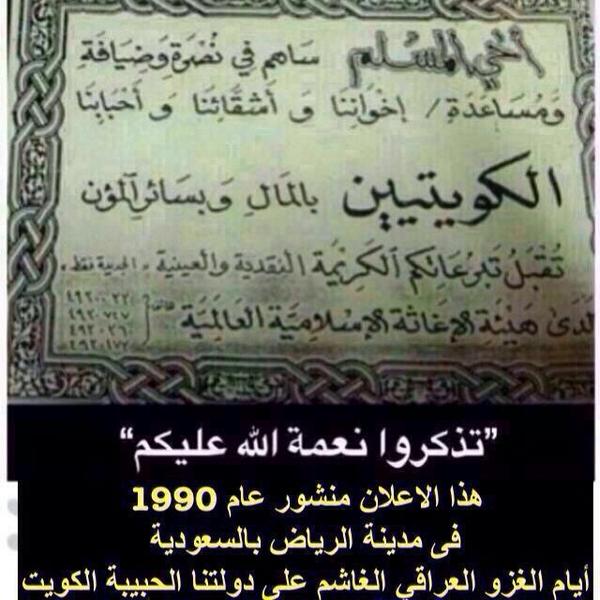 أخي المسلم ساهم في نصرة وضيافة
ومساعدة / إخواننا وأشقائنا وأحبابنا
الكويتيين بالمال وبسائر المؤن
تقبل تبرعاتكم الكريمة النقدية والعينية
لدى هيئة الإغاثة الإسلامية العالمية
”تذكروا نعمة الله عليكم“
هذا الاعلان منشور عام 1990
فى مدينة الرياض بالسعودية
أيام الغزو العراقي الغاشم على دولتنا الحبيبة الكويت